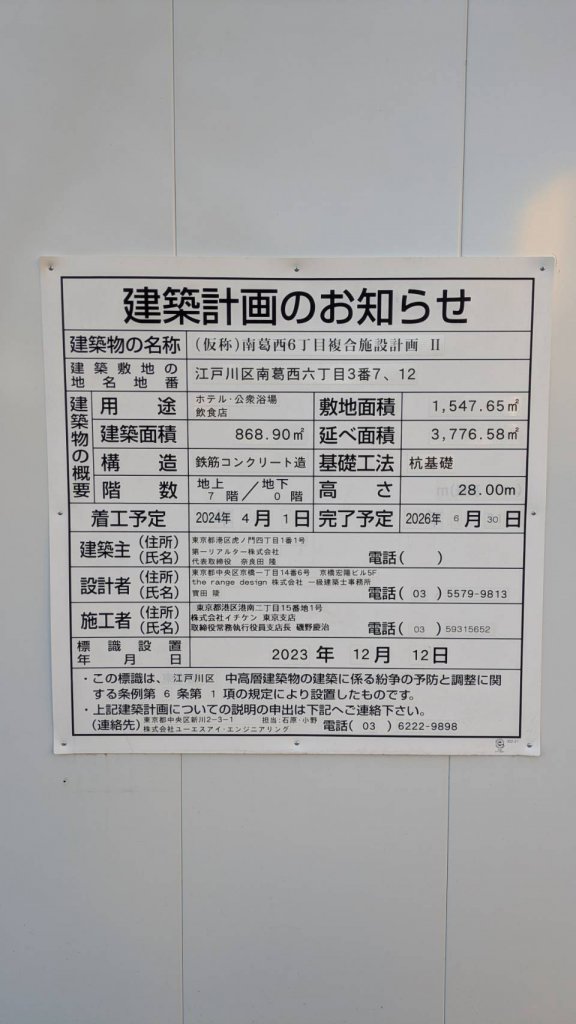 建築計画のお知らせ
建築物の名称 （仮称）南葛西6丁目複合施設計画 Ⅱ
建築敷地の地名地番 江戸川区南葛西六丁目3番7、12
建築物の概要
用途 ホテル・公衆浴場 飲食店 敷地面積 1,547.65㎡
建築面積 868.90㎡ 延べ面積 3,776.58㎡
構造 鉄筋コンクリート造 基礎工法 杭基礎
階数 地上7階／地下0階 高さ 28.00m
着工予定 2024年 4月 1日 完了予定 2026年 6月 30日
建築主 （住所）（氏名） 東京都港区虎ノ門四丁目1番1号
第一リアルター株式会社
代表取締役 奈良田 隆 電話（ ）
設計者 （住所）（氏名） 東京都中央区京橋一丁目14番6号 京橋宏陽ビル5F
the range design 株式会社 一級建築士事務所
寳田 陵 電話（ 03 ）5579-9813
施工者 （住所）（氏名） 東京都港区港南二丁目15番地1号
株式会社イチケン 東京支店
取締役常務執行役員支店長 磯野慶治 電話（ 03 ）59315652
標識設置年月日 2023 年 12月 12日
・この標識は、江戸川区 中高層建築物の建築に係る紛争の予防と調整に関
する条例第 6 条第 1 項の規定により設置したものです。
・上記建築計画についての説明の申出は下記へご連絡下さい。
（連絡先） 東京都中央区新川2-3-1 担当：石原・小野 電話（ 03 ）6222-9898
株式会社ユーエスアイ・エンジニアリング